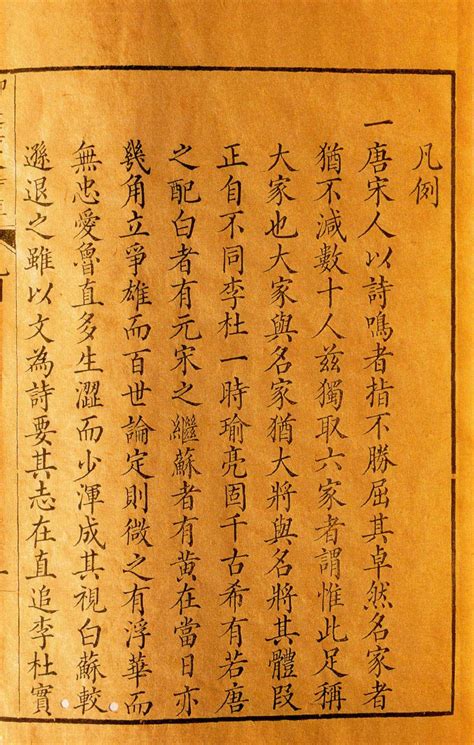 凡例
一唐宋人以詩鳴者指不勝屈其卓然名家者
猶不減數十人兹獨取六家者謂惟此足稱
大家也大家與名家猶大將與名將其體段
正自不同李杜一時瑜亮固千古希有若唐
之配白者有元宋之繼蘇者有黃在當日亦
幾角立爭雄而百世論定則微之有浮華而
無忠愛魯直多生澀而少渾成其視白蘇較
遜退之雖以文為詩要其志在直追李杜實